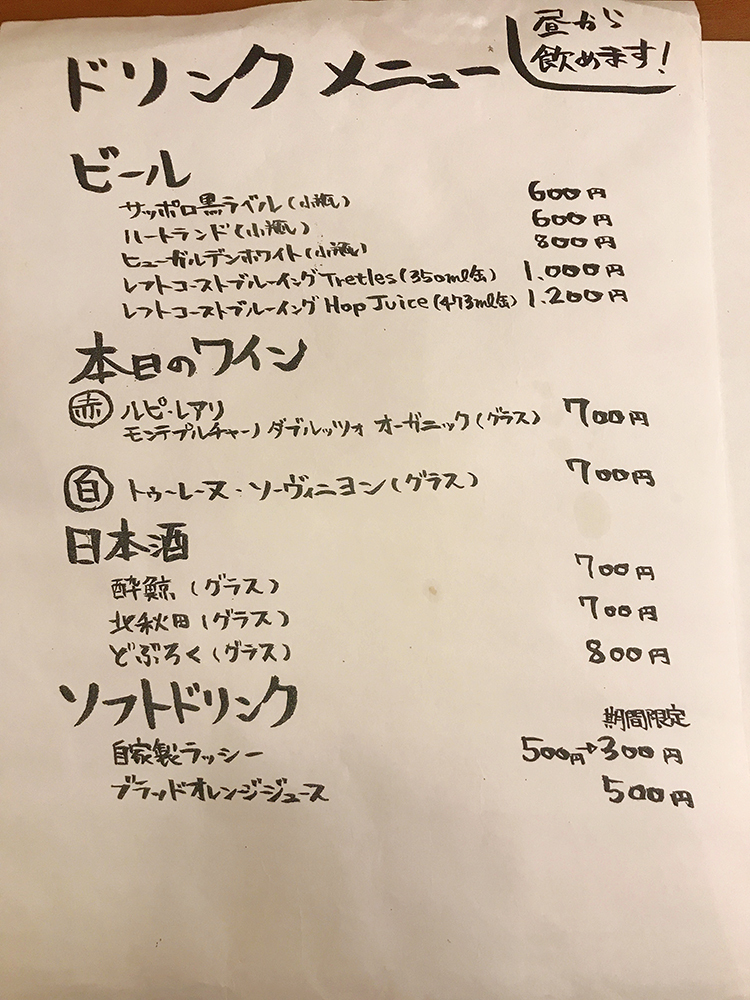 ドリンクメニュー
昼から
飲めます!
ビール
サッポロ黒ラベル(小瓶) 600円
ハートランド(小瓶) 600円
ヒューガルデンホワイト(小瓶) 800円
レフトコーストブルーイングTretles(350ml缶) 1.000円
レフトコーストブルーイングHop Juice(473ml缶) 1.200円
本日のワイン
赤 ルピ・レアリ
モンテプルチャーノ ダブルッツォ オーガニック(グラス) 700円
白 トゥーレーヌ・ソーヴィニヨン(グラス) 700円
日本酒
酔鯨(グラス) 700円
北秋田(グラス) 700円
どぶろく(グラス) 800円
ソフトドリンク
期間限定
自家製ラッシー 500円→300円
ブラッドオレンジジュース 500円